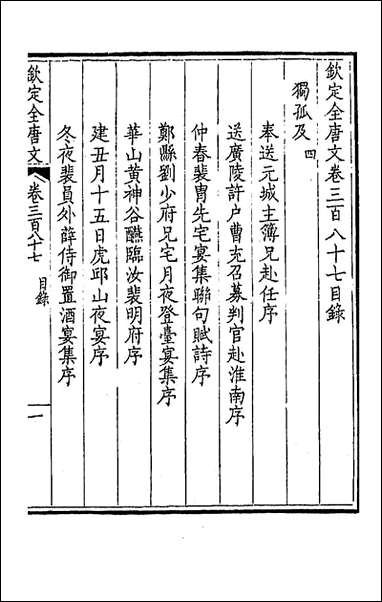 欽定全唐文卷三百八十七目錄
獨孤及 四
奉送元城主簿兄赴任序
送廣陵許戶曹充召募判官赴淮南序
仲春裴胄先宅宴集聯句賦詩序
鄭縣劉少府兄宅月夜登臺宴集序
華山黃神谷醼臨汝裴明府序
建丑月十五日虎邱山夜宴序
冬夜裴員外薛侍御置酒宴集序
欽定全唐文 卷三百八十七 目錄 一